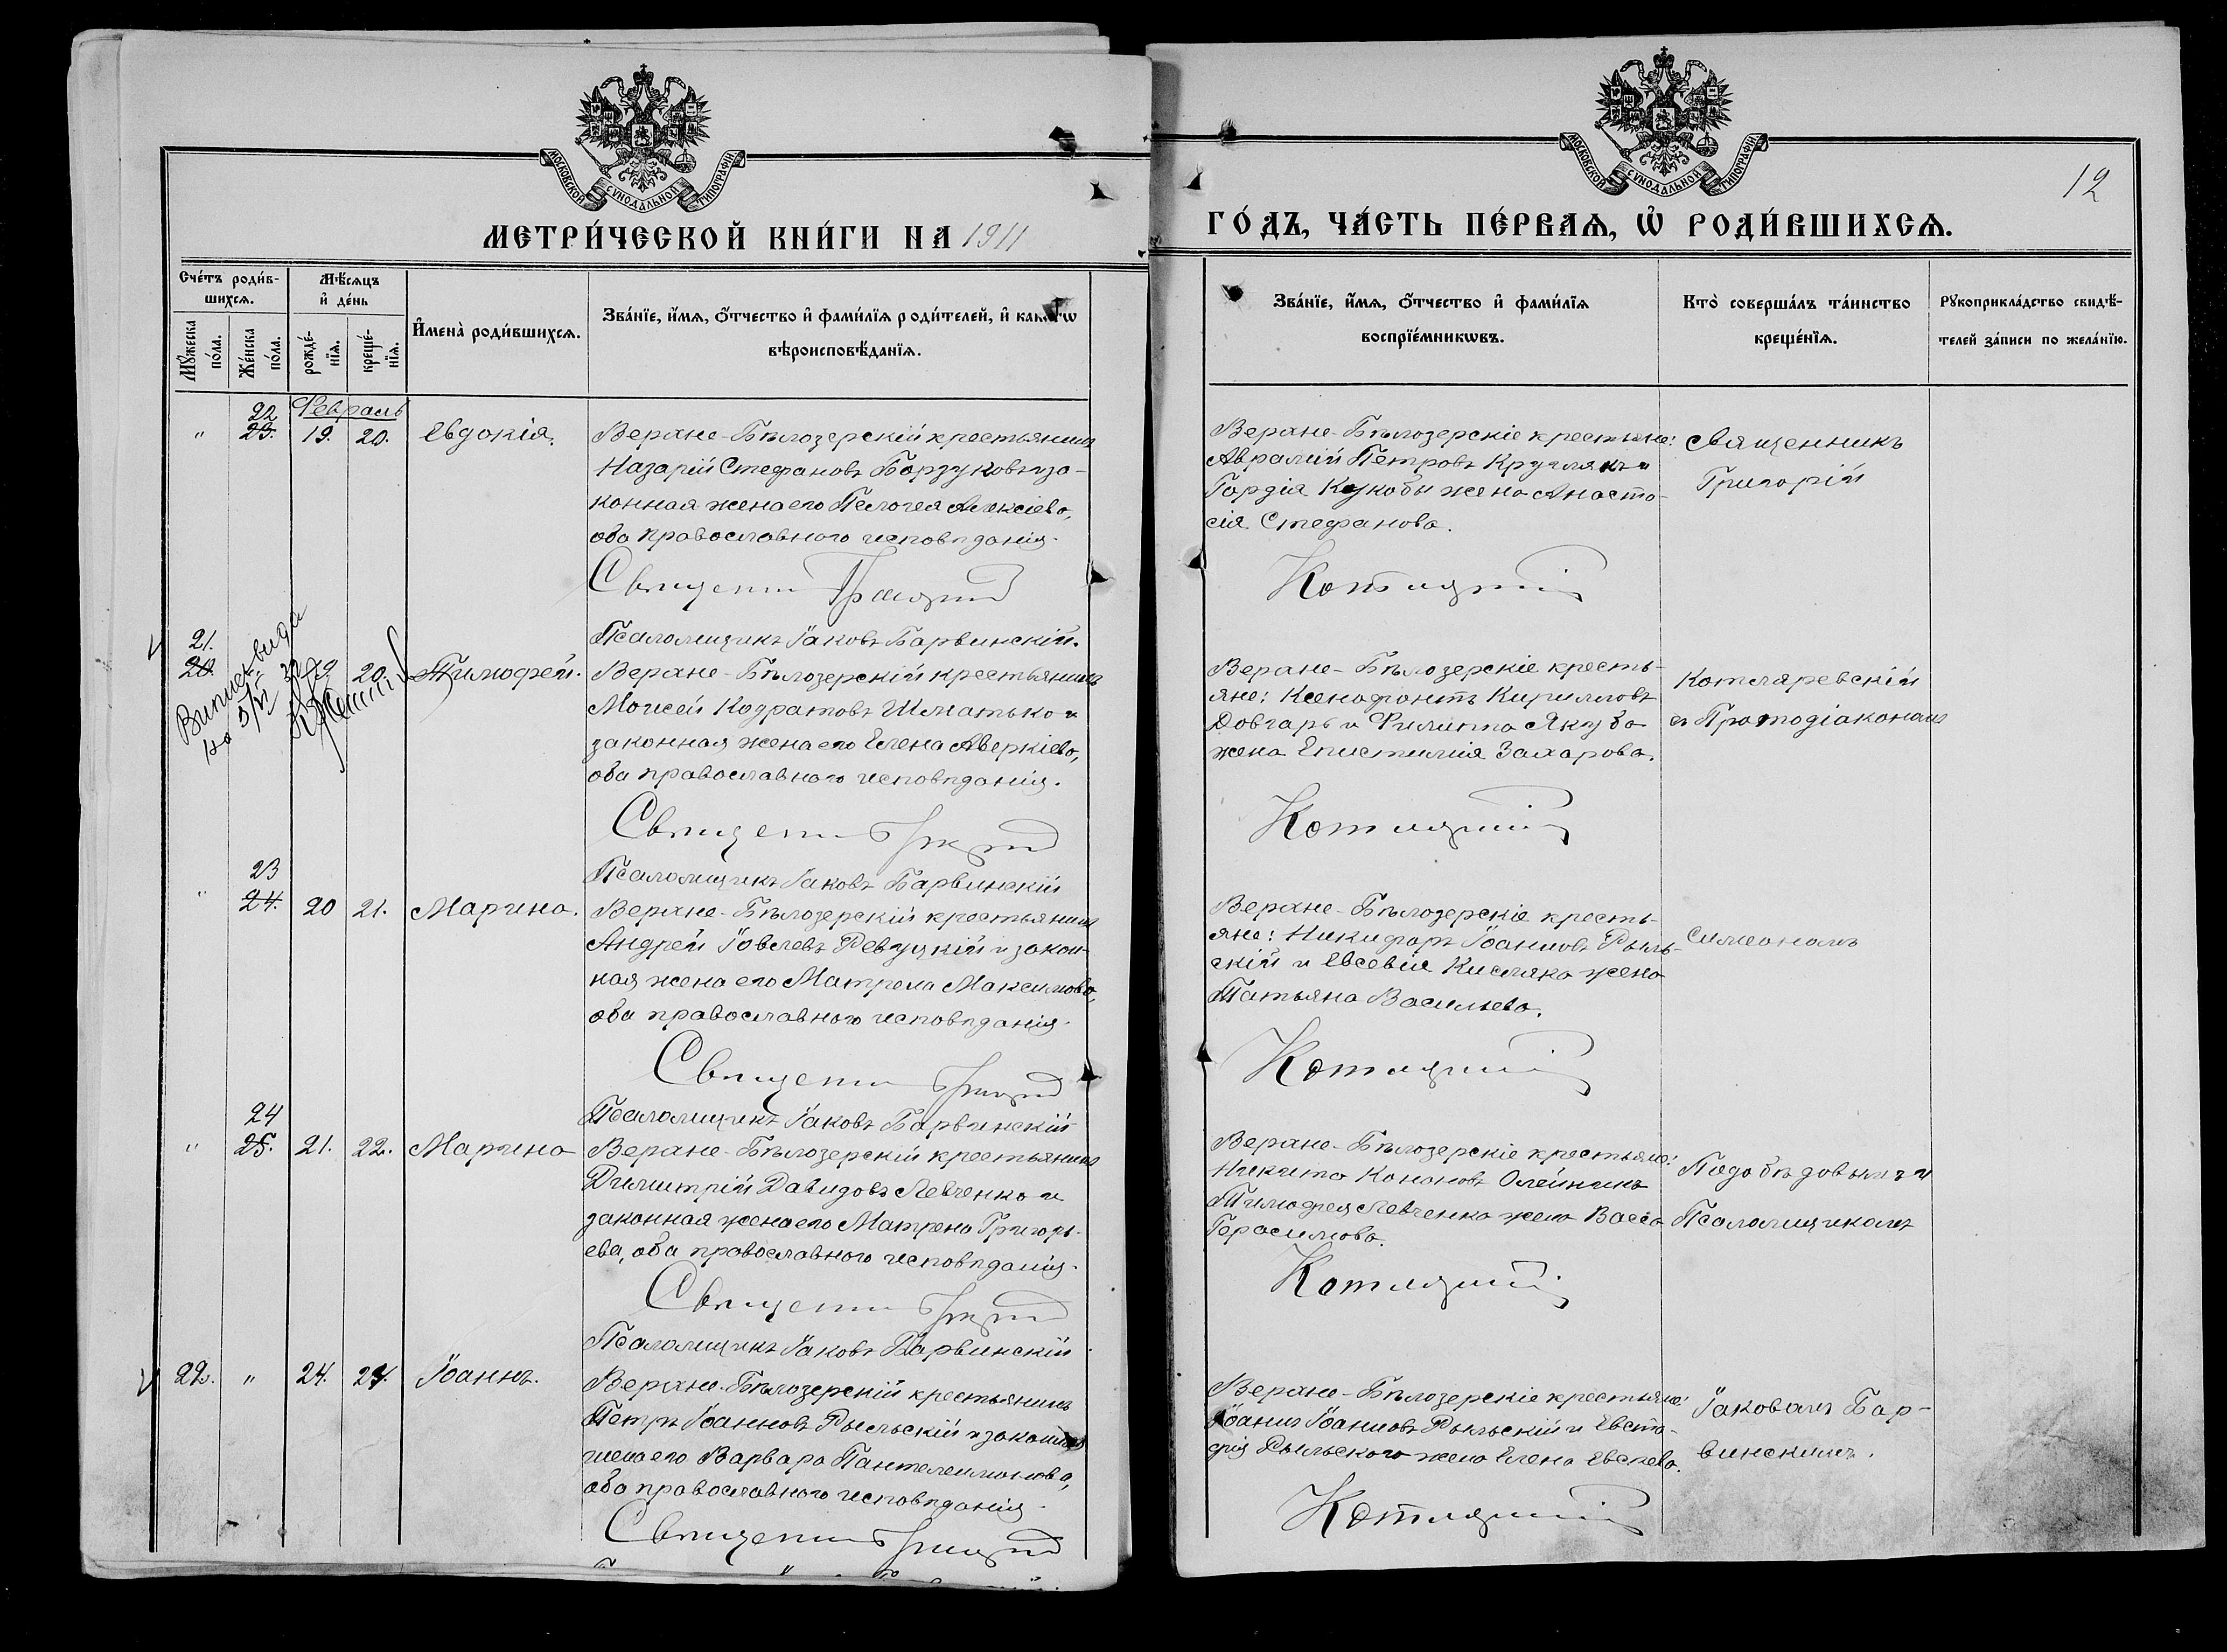 МОСКОВСКОЙ СУНОДАЛЬНОЙ ТИПОГРАФІИ
МЕТРИ́ЧЕСКОЙ КНИ́ГИ НА 1911
Сче́тъ роди́в-
шихсѧ.
Мѣ́сѧцъ
и҆ де́нь
Мꙋ́жеска
по́ла.
Же́нска
по́ла.
рожде́-
нїѧ.
креще́-
нїѧ.
И҆мена̀ роди́вшихсѧ.
Зва́нїе, и҆́мѧ, ѻ҆́тчество и҆ фами́лїѧ роди́телей, и҆ како́гѡ
вѣроисповѣ́данїѧ.
Февраль
22
" 23. 19. 20. Евдокія.
Верхне-Бѣлозерскій крестьянинъ
Назарій Стефановъ Борзуковъ и за-
конная жена его Пелагея Алексіева,
оба православнаго исповѣданія.
Священникъ
Псаломщикъ Іаковъ Барвинскій.
21.
20. 19 20. Тимофей.
Верхне-Бѣлозерскій крестьянинъ
Моисей Кодратовъ Шматько и
законная жена его Елена Аверкіева,
оба православнаго исповѣданія.
Священникъ
Псаломщикъ Іаковъ Барвинскій
23
" 24. 20 21. Марина.
Верхне-Бѣлозерскій крестьянинъ
Андрей Іовлевъ Ревуцкій и закон-
ная жена его Матрена Максимова,
оба православнаго исповѣданія.
Священникъ
Псаломщикъ Іаковъ Барвинскій
24
" 25. 21. 22. Марина
Верхне-Бѣлозерскій крестьянинъ
Димитрій Давидовъ Левченко и
законная жена его Матрена Григорь-
ева, оба православнаго исповѣданія.
Священникъ
Псаломщикъ Іаковъ Барвинскій
22. " 24. 24. Іоаннъ.
Верхне-Бѣлозерскій крестьянинъ
Петръ Іоанновъ Рыльскій и законная
жена его Варвара Пантелеимонова,
оба православнаго исповѣданія.
Священникъ
МОСКОВСКОЙ СУНОДАЛЬНОЙ ТИПОГРАФІИ
12
ГО́ДЪ, ЧА́СТЬ ПЕ́РВАѦ, Ѡ҆ РОДИ́ВШИХСѦ.
Зва́нїе, и҆́мѧ, ѻ҆́тчество и҆ фами́лїѧ
воспрїе́мникѡвъ.
Кто̀ соверша́лъ та́инство
креще́нїѧ.
Рꙋкоприкла́дство свидѣ́-
телей за́писи по жела́нїю.
Верхне-Бѣлозерскіе крестьяне:
Авраамій Петровъ Круглякъ и
Гордія Кукобы жена Анаста-
сія Стефанова.
Священникъ
Григорій
Верхне-Бѣлозерскіе кресть-
яне: Ксенофонтъ Кирилловъ
Довгаръ и Филиппа Якуба
жена Епистимія Захарова.
Котляревскій
съ Протодіакономъ
Верхне-Бѣлозерскіе кресть-
яне: Никифоръ Іоанновъ Рыль-
скій и Евсевія Кисляка жена
Татьяна Васильева.
Симеономъ
Верхне-Бѣлозерскіе крестьяне:
Никита Кононовъ Олейникъ
Тимофея Левченка жена Васса
Герасимова.
Подобѣдовымъ и
Псаломщикомъ
Верхне-Бѣлозерскіе крестьяне:
Іоаннъ Іоанновъ Рыльскій и Евста-
фія Рыльского жена Елена
Іаковомъ Бар-
винскимъ.